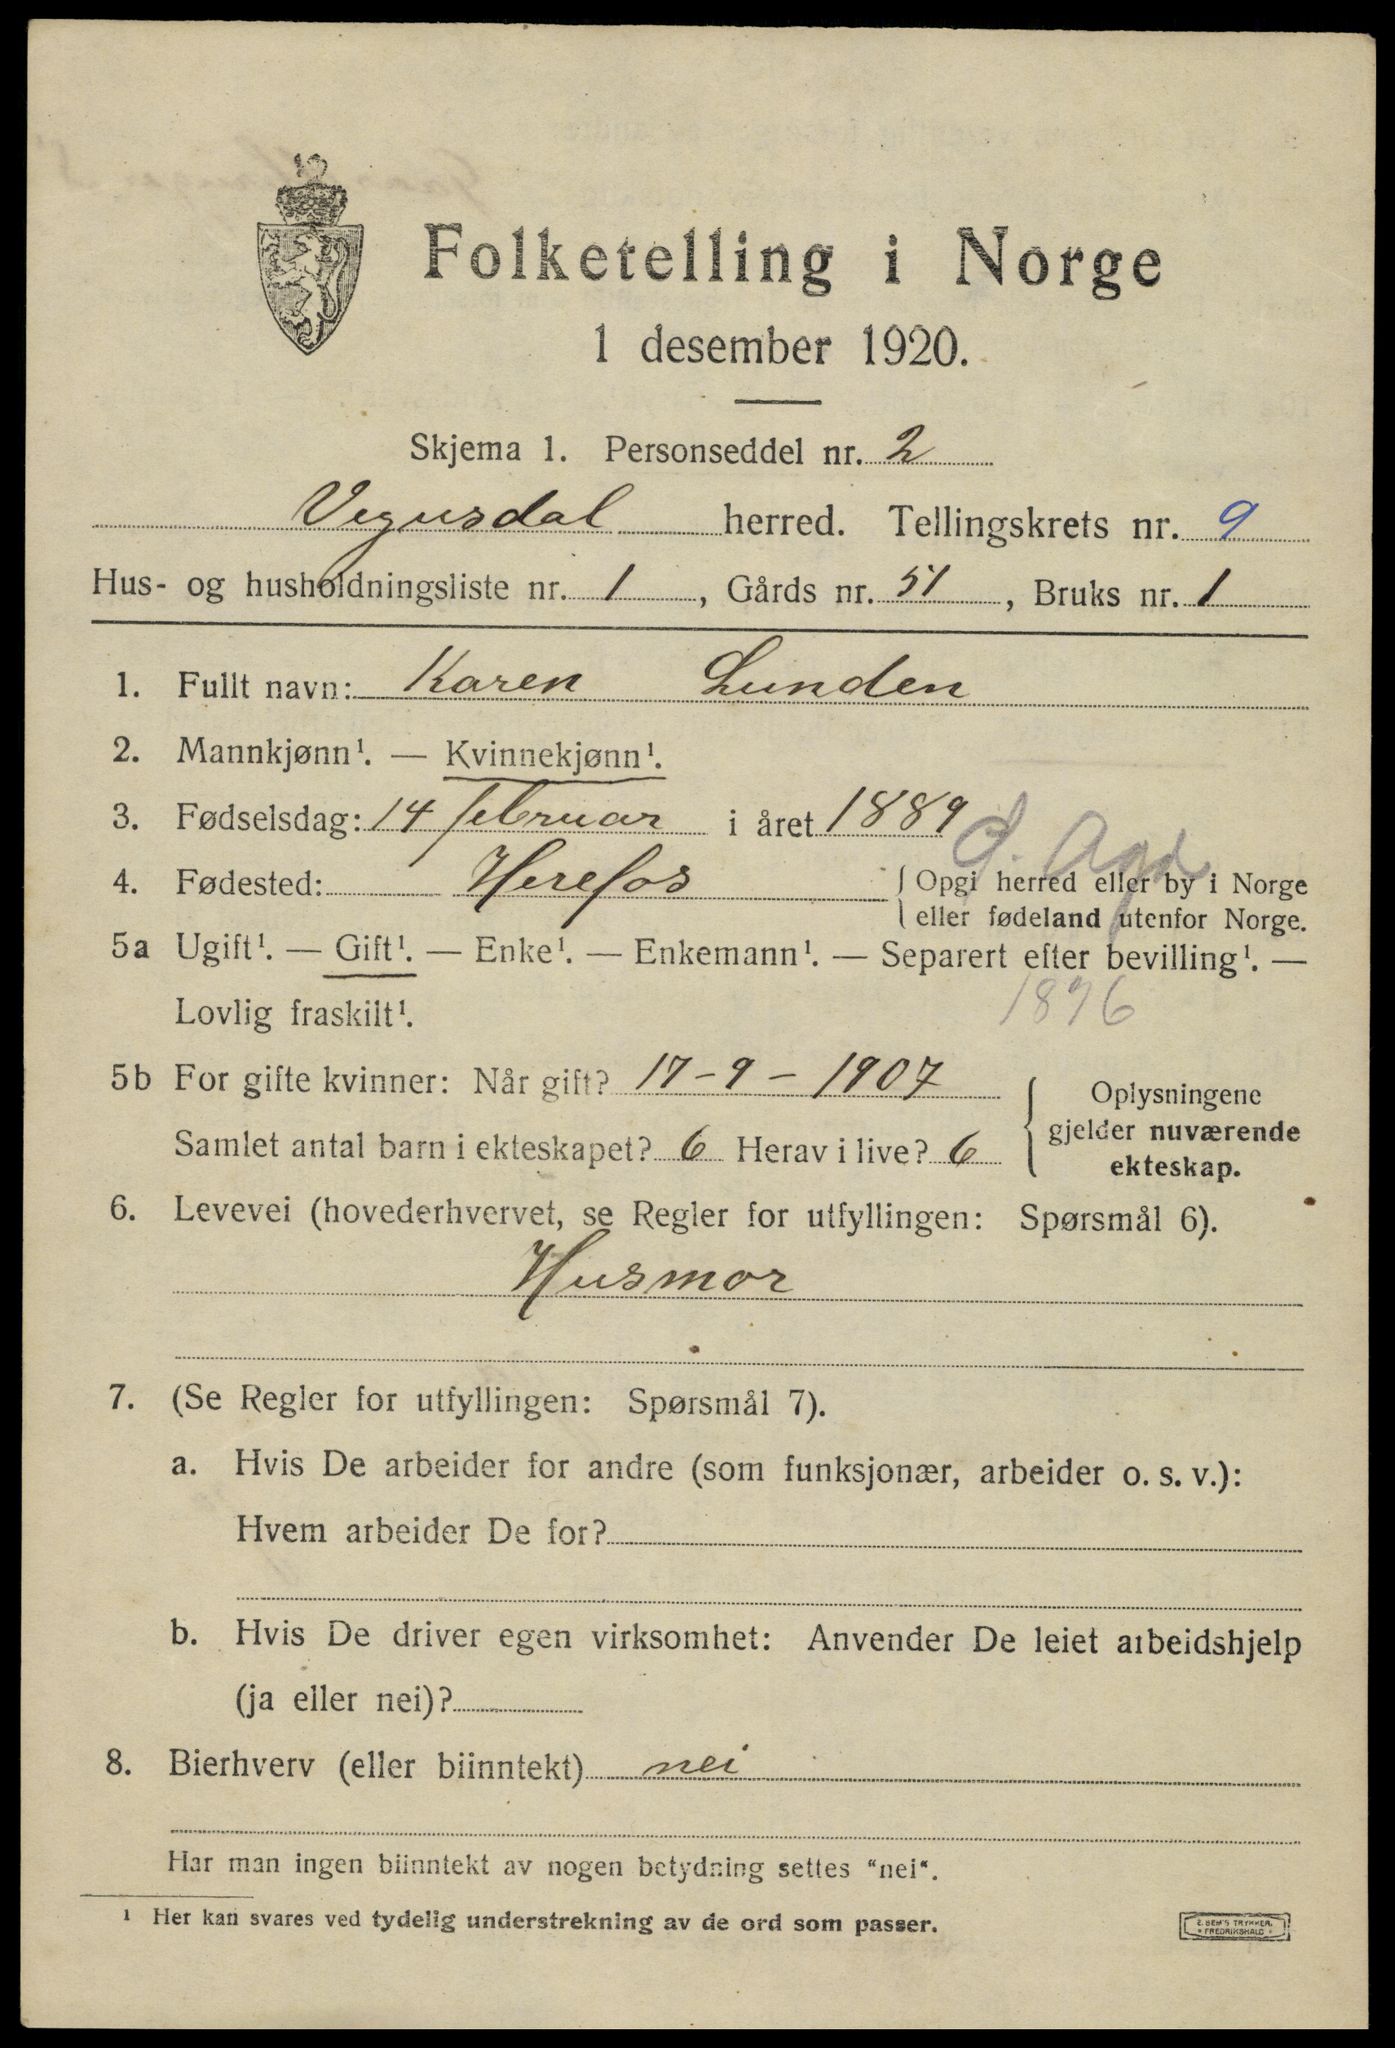 Folketelling i Norge
1 desember 1920.
Skjema 1. Personseddel nr. 2
Vegusdal herred. Tellingskrets nr. 9
Hus- og husholdningsliste nr. 1, Gårds nr. 51, Bruks nr. 1
1. Fullt navn: Karen Lunden
2. Mannkjønn¹. — Kvinnekjønn¹.
3. Fødselsdag: 14 februar i året 1889
4. Fødested: Herefos { Opgi herred eller by i Norge
eller fødeland utenfor Norge.
5a Ugift¹. — Gift¹. — Enke¹. — Enkemann¹. — Separert efter bevilling¹. —
Lovlig fraskilt¹.
5b For gifte kvinner: Når gift? 17-9-1907
Samlet antal barn i ekteskapet? 6 Herav i live? 6
{ Oplysningene
gjelder nuværende
ekteskap.
6. Levevei (hovederhvervet, se Regler for utfyllingen: Spørsmål 6).
Husmor
7. (Se Regler for utfyllingen: Spørsmål 7).
a. Hvis De arbeider for andre (som funksjonær, arbeider o. s. v.):
Hvem arbeider De for?
b. Hvis De driver egen virksomhet: Anvender De leiet arbeidshjelp
(ja eller nei)?
8. Bierhverv (eller biinntekt) nei
Har man ingen biinntekt av nogen betydning settes "nei".
¹ Her kan svares ved tydelig understrekning av de ord som passer.
E. SEM'S TRYKKERI
FREDRIKSHALD